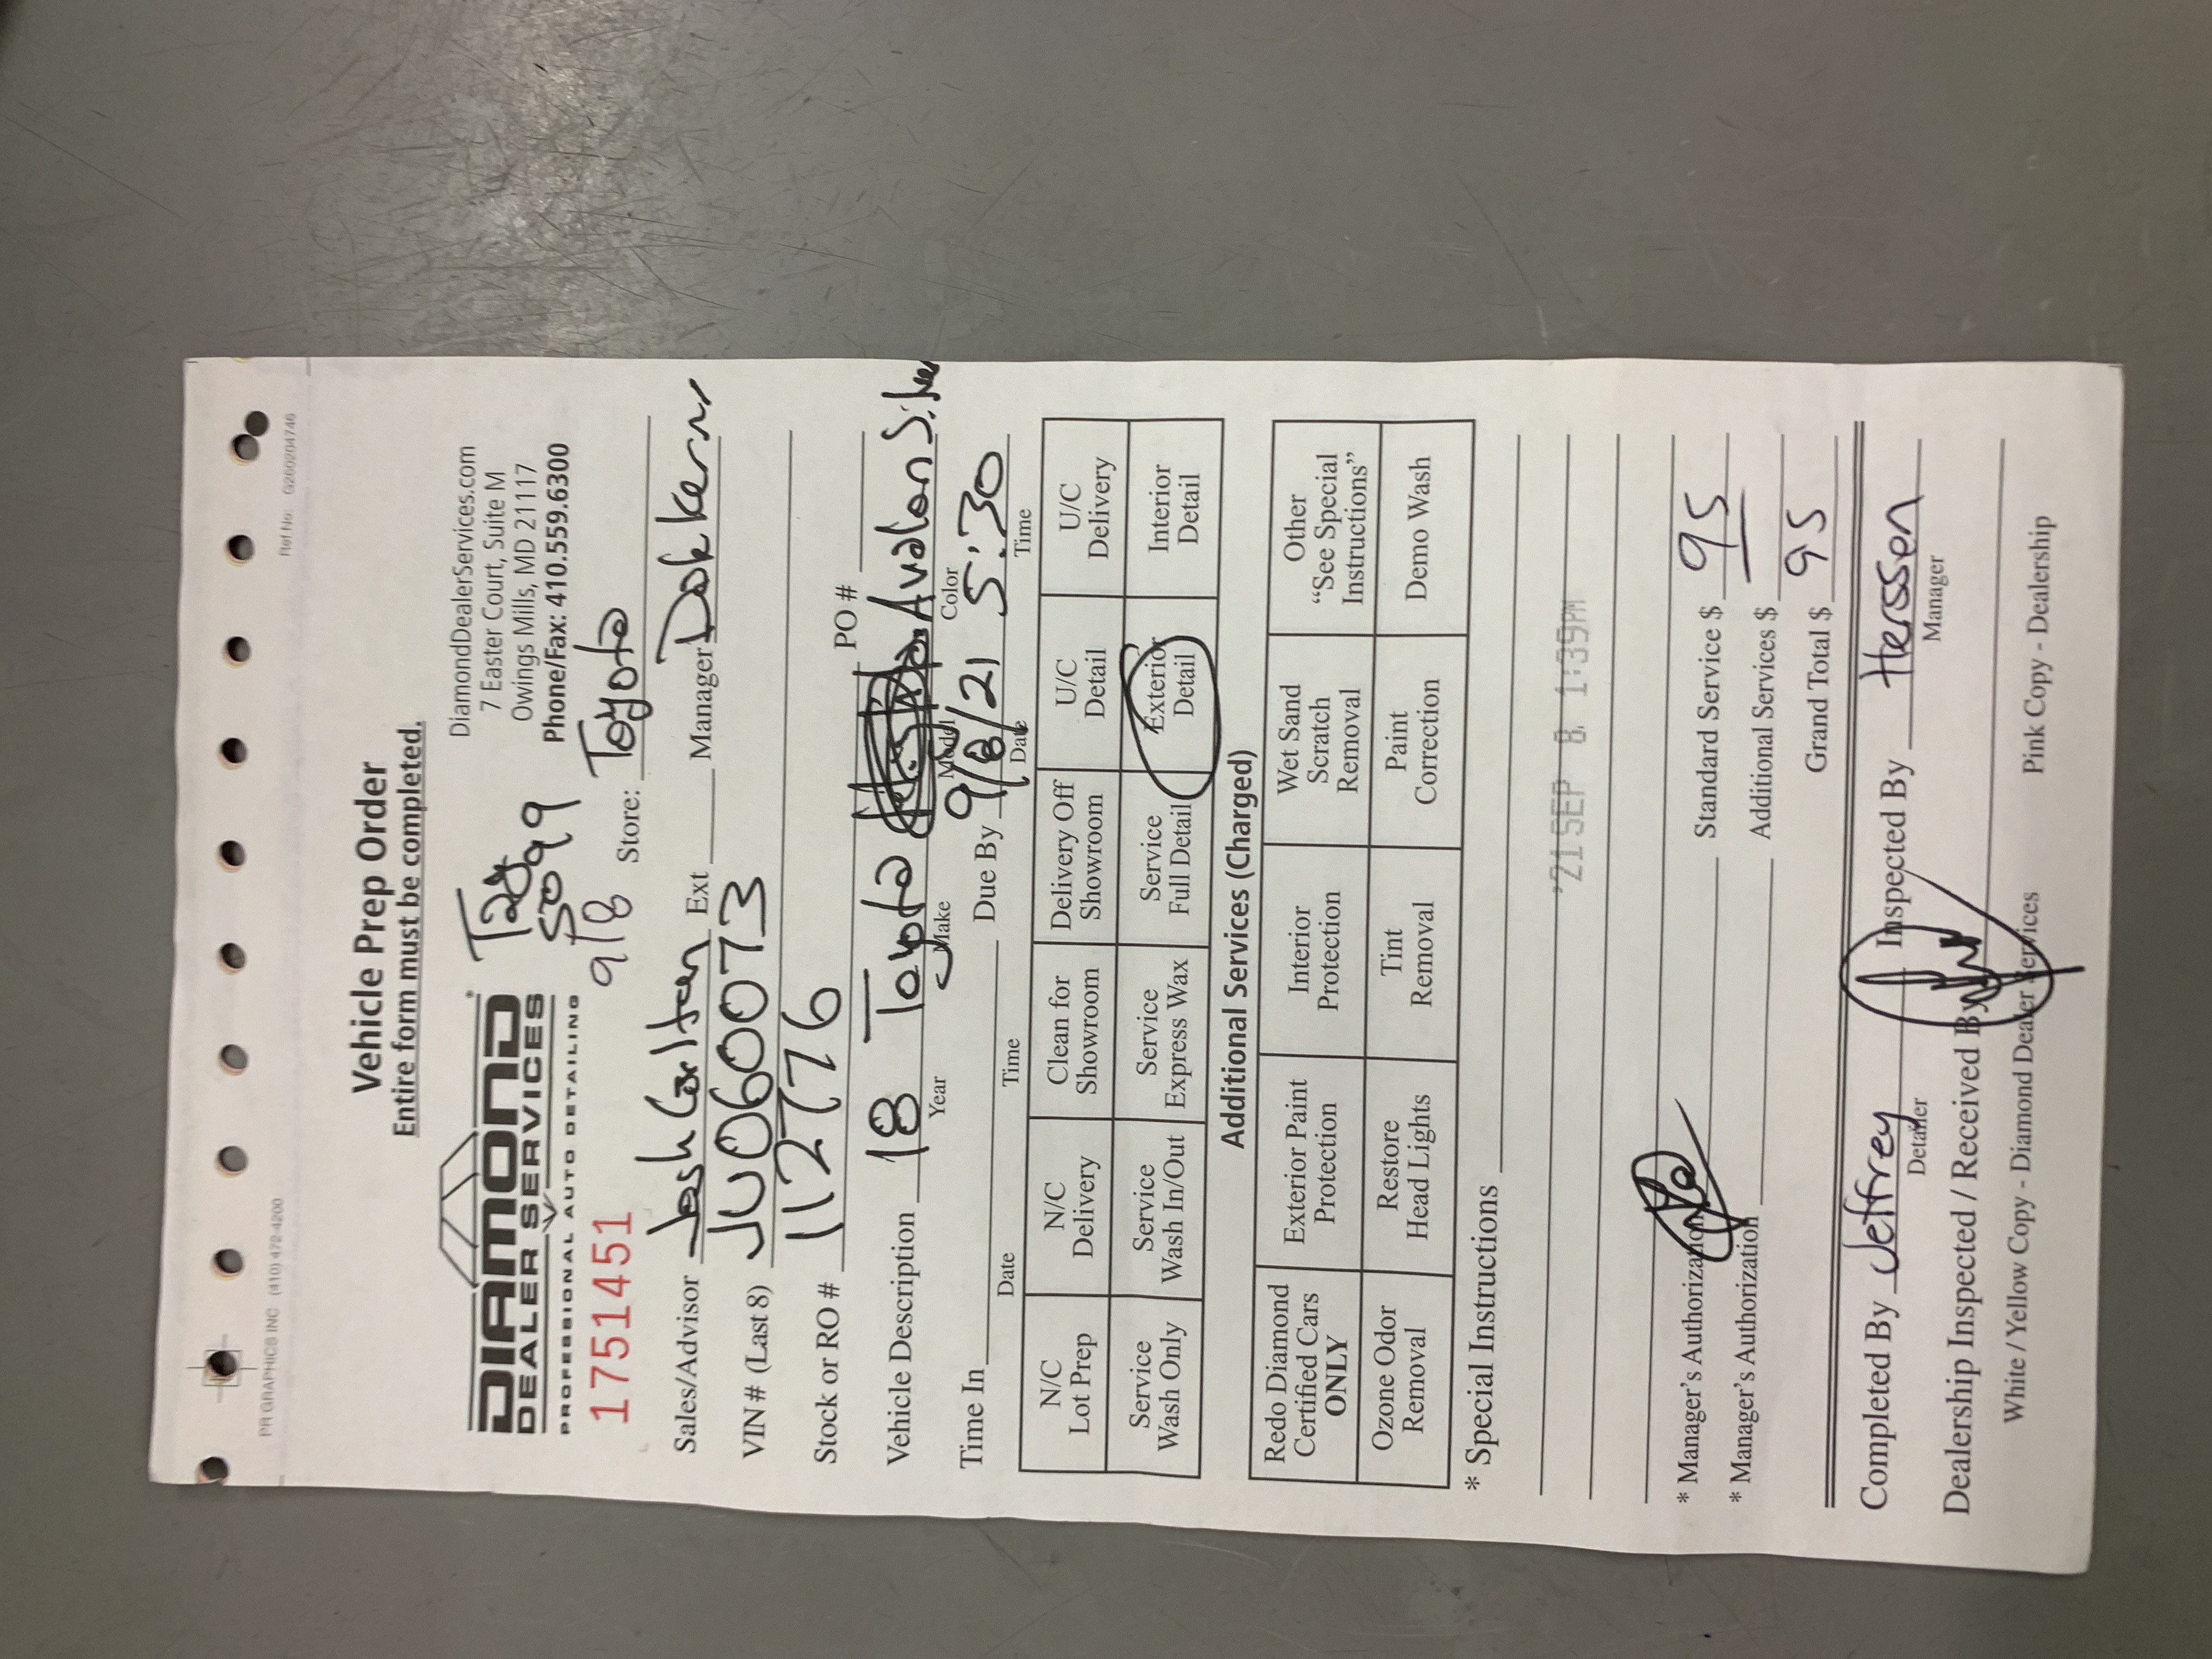 PR GRAPHICS INC (410) 472-4200 Ref No: G260204746
Vehicle Prep Order
Entire form must be completed.
DIAMOND
DEALER SERVICES
PROFESSIONAL AUTO DETAILING
Tag
5099
9/8
DiamondDealerServices.com
7 Easter Court, Suite M
Owings Mills, MD 21117
Phone/Fax: 410.559.6300
1751451 Store: Toyota
Sales/Advisor Josh Carltan Ext Manager Dak Kern
VIN # (Last 8) JU060073
Stock or RO # 112776 PO #
Vehicle Description 18 Toyota Avalon Silver
Year Make Model Color
Time In Due By 9/8/21 5:30
Date Time Date Time
N/C Lot Prep
N/C Delivery
Clean for Showroom
Delivery Off Showroom
U/C Detail
U/C Delivery
Service Wash Only
Service Wash In/Out
Service Express Wax
Service Full Detail
Exterior Detail
Interior Detail
Additional Services (Charged)
Redo Diamond Certified Cars ONLY
Exterior Paint Protection
Interior Protection
Wet Sand Scratch Removal
Other "See Special Instructions"
Ozone Odor Removal
Restore Head Lights
Tint Removal
Paint Correction
Demo Wash
* Special Instructions
'21 SEP 8 1:39PM
* Manager's Authorization Standard Service $ 95
* Manager's Authorization Additional Services $
Grand Total $ 95
Completed By Jeffrey Inspected By Herssen
Detailer Manager
Dealership Inspected / Received By
White / Yellow Copy - Diamond Dealer Services Pink Copy - Dealership